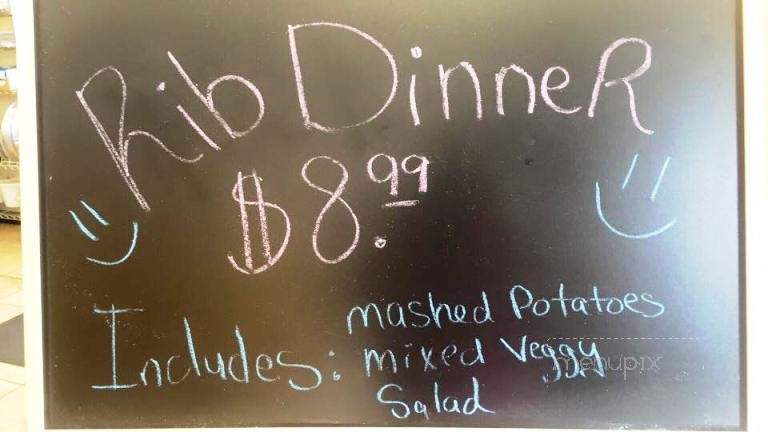 Rib DinneR
$8.99
Includes: mashed Potatoes
mixed Veggy
Salad
menupix